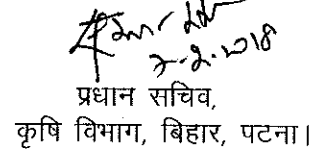 7.2.2018
प्रधान सचिव,
कृषि विभाग, बिहार, पटना।